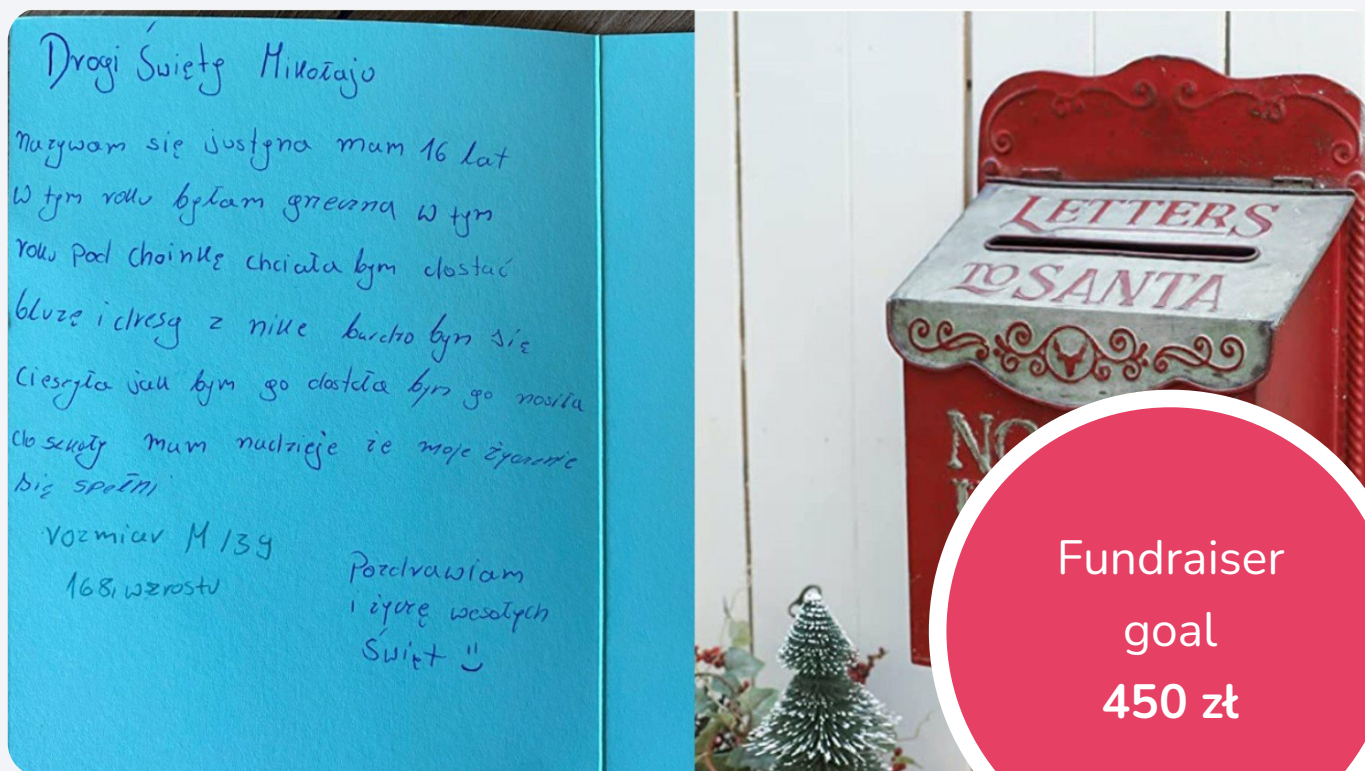 Drogi Święty Mikołaju
nazywam się justyna mam 16 lat
w tym roku byłam grzeczna w tym
roku pod choinkę chciała bym dostać
bluzę i dresy z nike bardzo bym się
cieszyła jak bym go dostała bym go nosiła
do szkoły mam nadzieje że moje życzenie
się spełni
rozmiar M /39
168, wzrostu
Pozdrawiam
i życzę wesołych
Świąt
LETTERS
TO SANTA
NO
Fundraiser
goal
450 zł